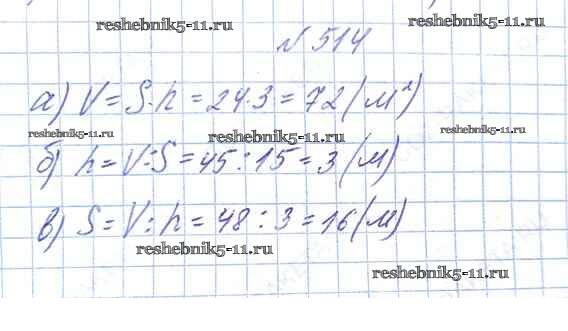 reshebnik5-11.ru
reshebnik5-11.ru
№514
а) V = S·h = 24·3 = 72 (м²)
reshebnik5-11.ru
reshebnik5-11.ru
reshebnik5-11.ru
б) h = V:S = 45:15 = 3 (м)
в) S = V:h = 48:3 = 16 (м)
reshebnik5-11.ru
reshebnik5-11.ru